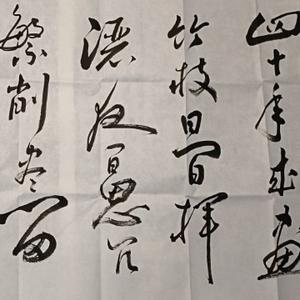 四十年來畫
竹枝日間揮
夜間思冗
繁削盡留